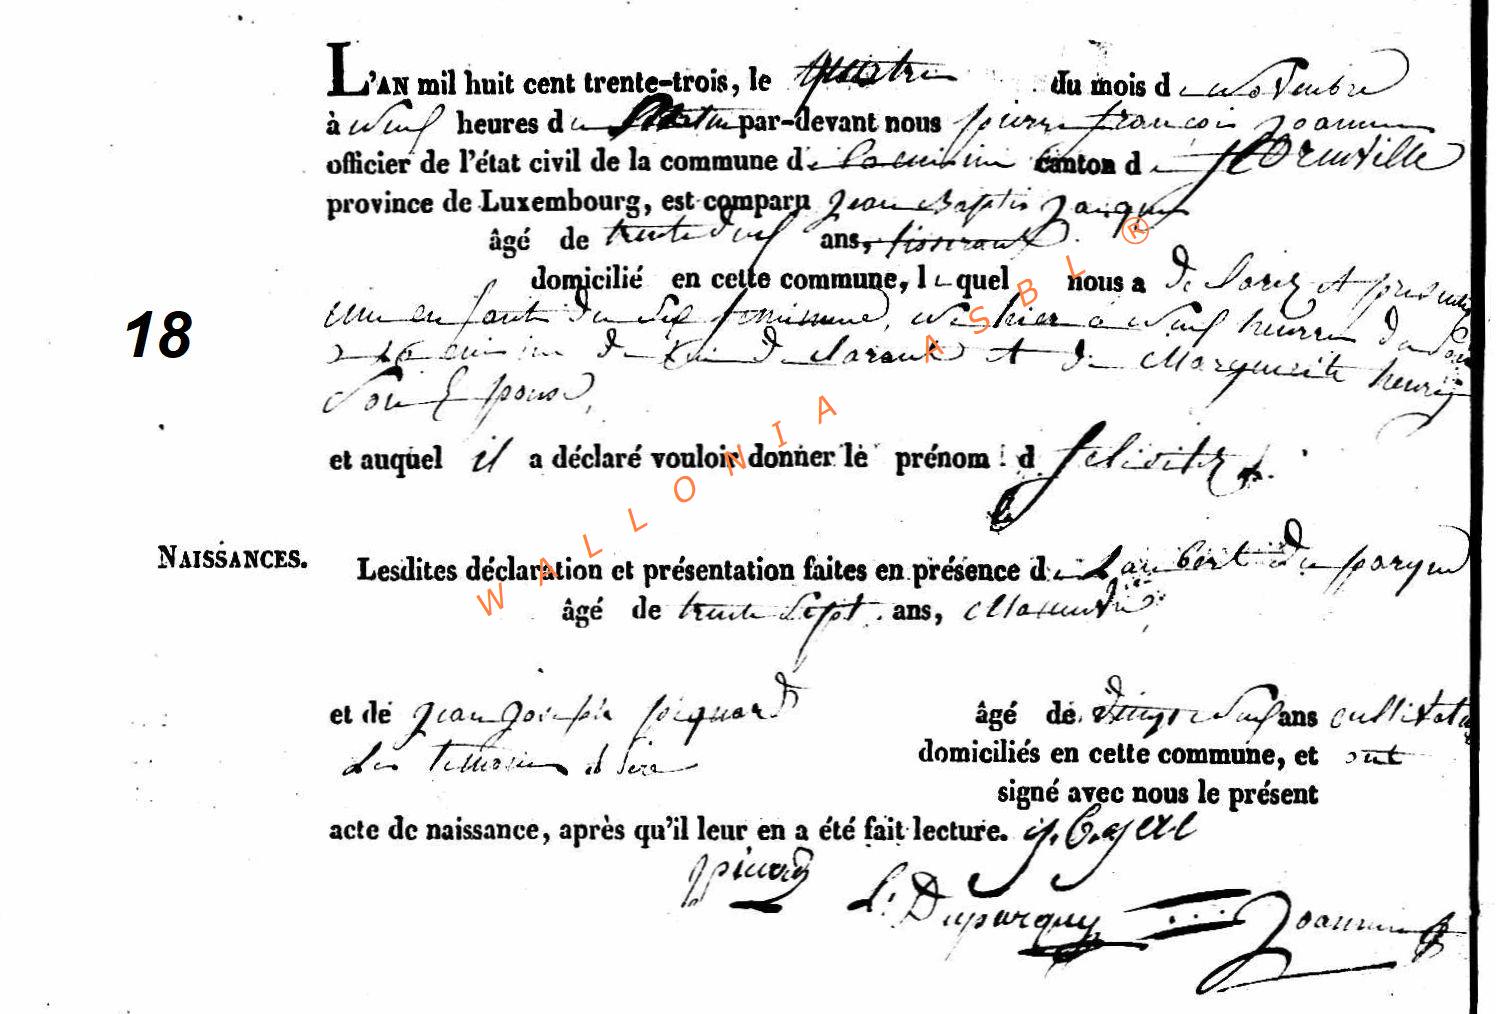 L'AN mil huit cent trente-trois, le quatre du mois de novembre
à neuf heures du matin par-devant nous pierre françois joannes
officier de l'état civil de la commune de canton de florenville
province de Luxembourg, est comparu jean Baptis jacques
âgé de trente neuf ans, tisserant
domicilié en cette commune, lequel nous a déclaré et présenté
une enfant du sex feminine, né hier à neuf heures du
de lui déclarant et de Marguerite henry
son Epouse,
18
et auquel il a déclaré vouloir donner le prénom d félicité
NAISSANCES.
Lesdites déclaration et présentation faites en présence de Lambert duparque
âgé de trente sept ans,
et de jean joseph piquard âgé de vingt neuf ans cultivateur
les temoins et père domiciliés en cette commune, et ont
signé avec nous le présent
acte de naissance, après qu'il leur en a été fait lecture.
L. Duparquy Joannes
WALLONIA ASBL ®